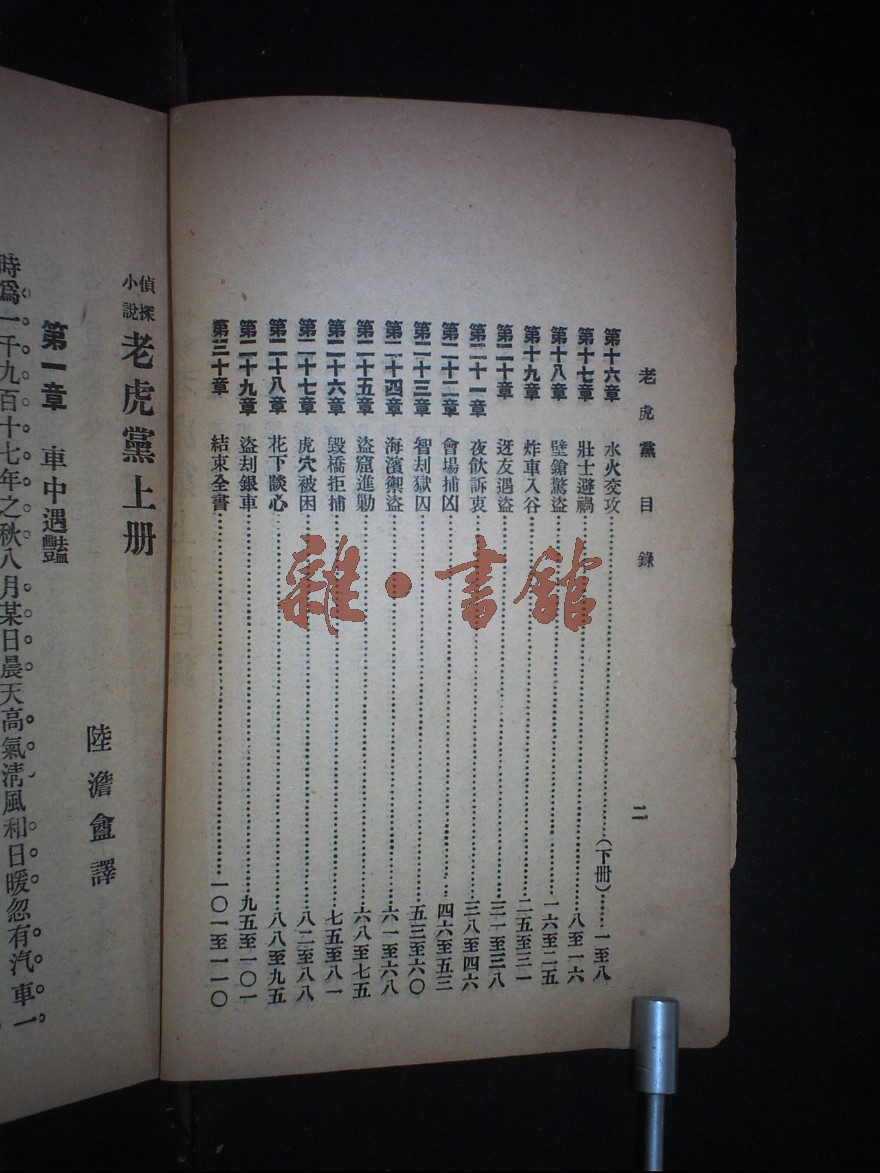 老虎黨目錄
二
第十六章 水火交攻……(下册)……一至八
第十七章 壯士避禍……八至一六
第十八章 壁鎗驚盜……一六至二五
第十九章 炸車入谷……二五至三一
第二十章 迓友遇盜……三一至三八
第二十一章 夜飲訴衷……三八至四六
第二十二章 會場捕凶……四六至五三
第二十三章 智刦獄囚……五三至六〇
第二十四章 海濱禦盜……六一至六八
第二十五章 盜窟進勦……六八至七五
第二十六章 毀橋拒捕……七五至八一
第二十七章 虎穴被困……八二至八八
第二十八章 花下談心……八八至九五
第二十九章 盜刦銀車……九五至一〇一
第三十章 結束全書……一〇一至一一〇
偵探小說 老虎黨上册
陸澹盦譯
第一章 車中遇豔
時爲一千九百十七年之秋八月某日晨天高氣淸風和日暖忽有汽車一
雜·書館